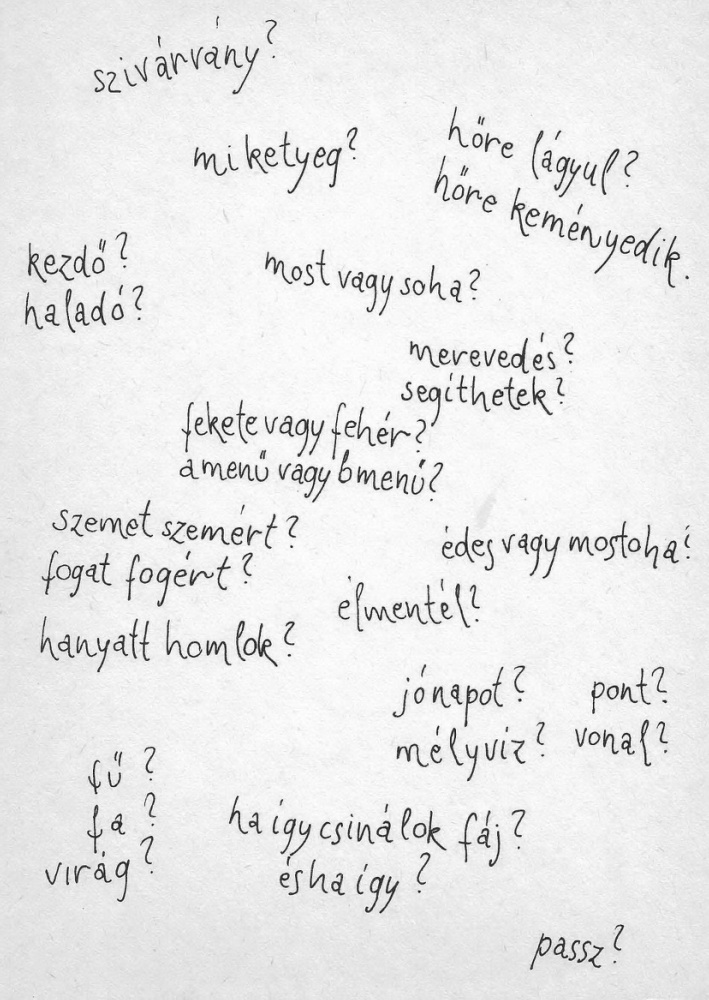 szivárvány?
miketyeg?
hőre lágyul?
hőre keményedik.
kezdő?
haladó?
most vagy soha?
merevedés?
segíthetek?
fekete vagy fehér?
a menü vagy b menü?
szemet szemért?
fogat fogért?
édes vagy mostoha?
elmentél?
hanyatt homlok?
jónapot?
mélyvíz?
pont?
vonal?
fű?
fa?
virág?
ha így csinálok fáj?
és ha így?
passz?